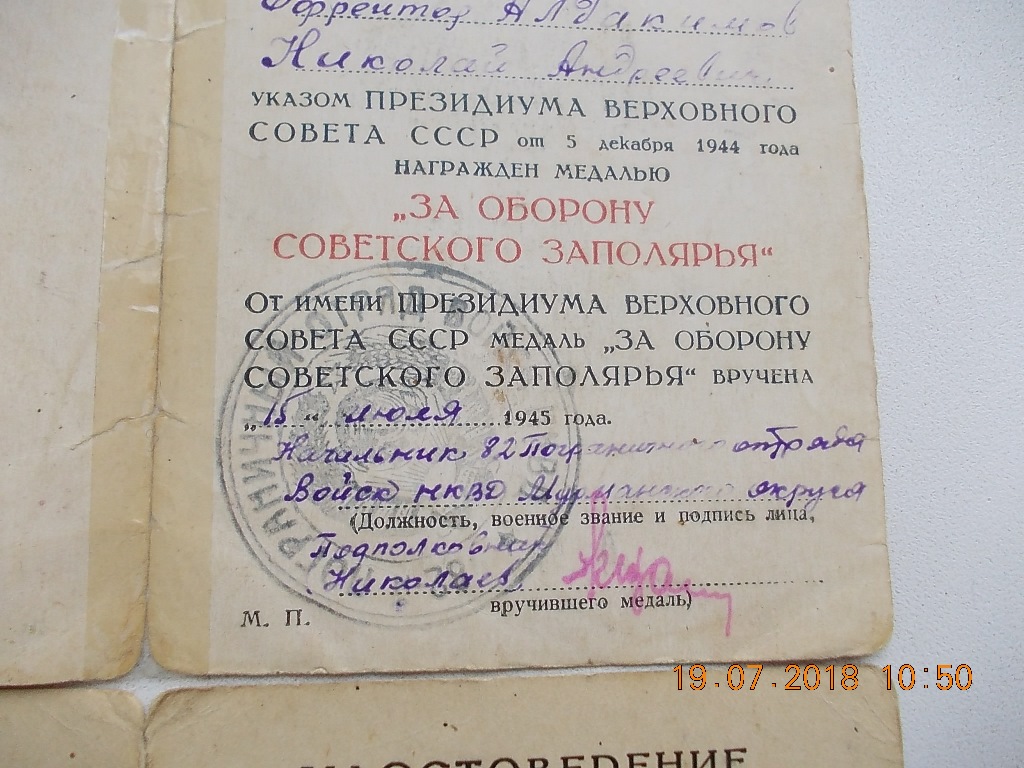 Ефрейтор Алдакимов
Николай Андреевич
УКАЗОМ ПРЕЗИДИУМА ВЕРХОВНОГО
СОВЕТА СССР от 5 декабря 1944 года
НАГРАЖДЕН МЕДАЛЬЮ
„ЗА ОБОРОНУ
СОВЕТСКОГО ЗАПОЛЯРЬЯ“
От имени ПРЕЗИДИУМА ВЕРХОВНОГО
СОВЕТА СССР МЕДАЛЬ „ЗА ОБОРОНУ
СОВЕТСКОГО ЗАПОЛЯРЬЯ“ ВРУЧЕНА
„15“ июля 1945 года.
Начальник 82 Пограничного отряда
Войск НКВД Мурманского округа
(Должность, военное звание и подпись лица,
Подполковник
Николаев
вручившего медаль)
М. П.
19.07.2018 10:50
УДОСТОВЕРЕНИЕ